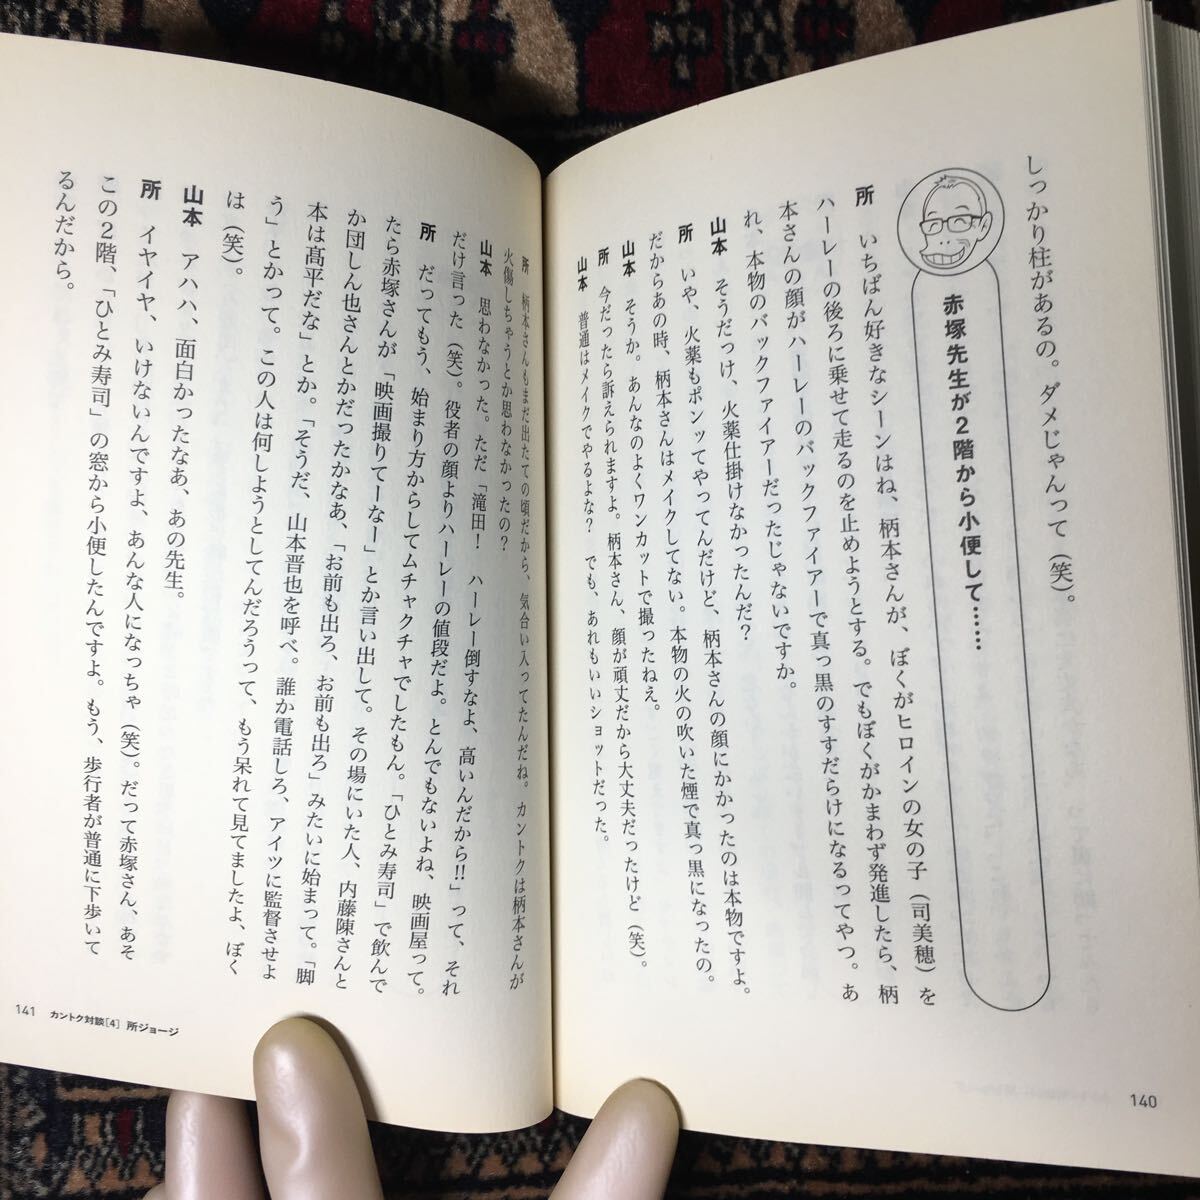 しっかり柱があるの。ダメじゃんって（笑）。
赤塚先生が２階から小便して……
所　いちばん好きなシーンはね、柄本さんが、ぼくがヒロインの女の子（司美穂）を
ハーレーの後ろに乗せて走るのを止めようとする。でもぼくがかまわず発進したら、柄
本さんの顔がハーレーのバックファイアーで真っ黒のすすだらけになるってやつ。あ
れ、本物のバックファイアーだったじゃないですか。
山本　そうだっけ、火薬仕掛けなかったんだ？
所　いや、火薬もポンッてやってんだけど、柄本さんの顔にかかったのは本物ですよ。
だからあの時、柄本さんはメイクしてない。本物の火の吹いた煙で真っ黒になったの。
山本　そうか。あんなのよくワンカットで撮ったねえ。
所　今だったら訴えられますよ。柄本さん、顔が頑丈だから大丈夫だったけど（笑）。
山本　普通はメイクでやるよな？　でも、あれもいいショットだった。
140
所　柄本さんもまだ出たての頃だから、気合い入ってたんだね。カントクは柄本さんが
火傷しちゃうとか思わなかったの？
山本　思わなかった。ただ「滝田！　ハーレー倒すなよ、高いんだから!!」って、それ
だけ言った（笑）。役者の顔よりハーレーの値段だよ。とんでもないよね、映画屋って。
所　だってもう、始まり方からしてムチャクチャでしたもん。「ひとみ寿司」で飲んで
たら赤塚さんが「映画撮りてーなー」とか言い出して。その場にいた人、内藤陳さんと
か団しん也さんとかだったかなあ、「お前も出ろ、お前も出ろ」みたいに始まって。「脚
本は高平だな」とか。「そうだ、山本晋也を呼べ。誰か電話しろ、アイツに監督させよ
う」とかって。この人は何しようとしてんだろうって、もう呆れて見てましたよ、ぼく
は（笑）。
山本　アハハ、面白かったなあ、あの先生。
所　イヤイヤ、いけないんですよ、あんな人になっちゃ（笑）。だって赤塚さん、あそ
この２階、「ひとみ寿司」の窓から小便したんですよ。もう、歩行者が普通に下歩いて
るんだから。
141　カントク対談［4］ 所ジョージ